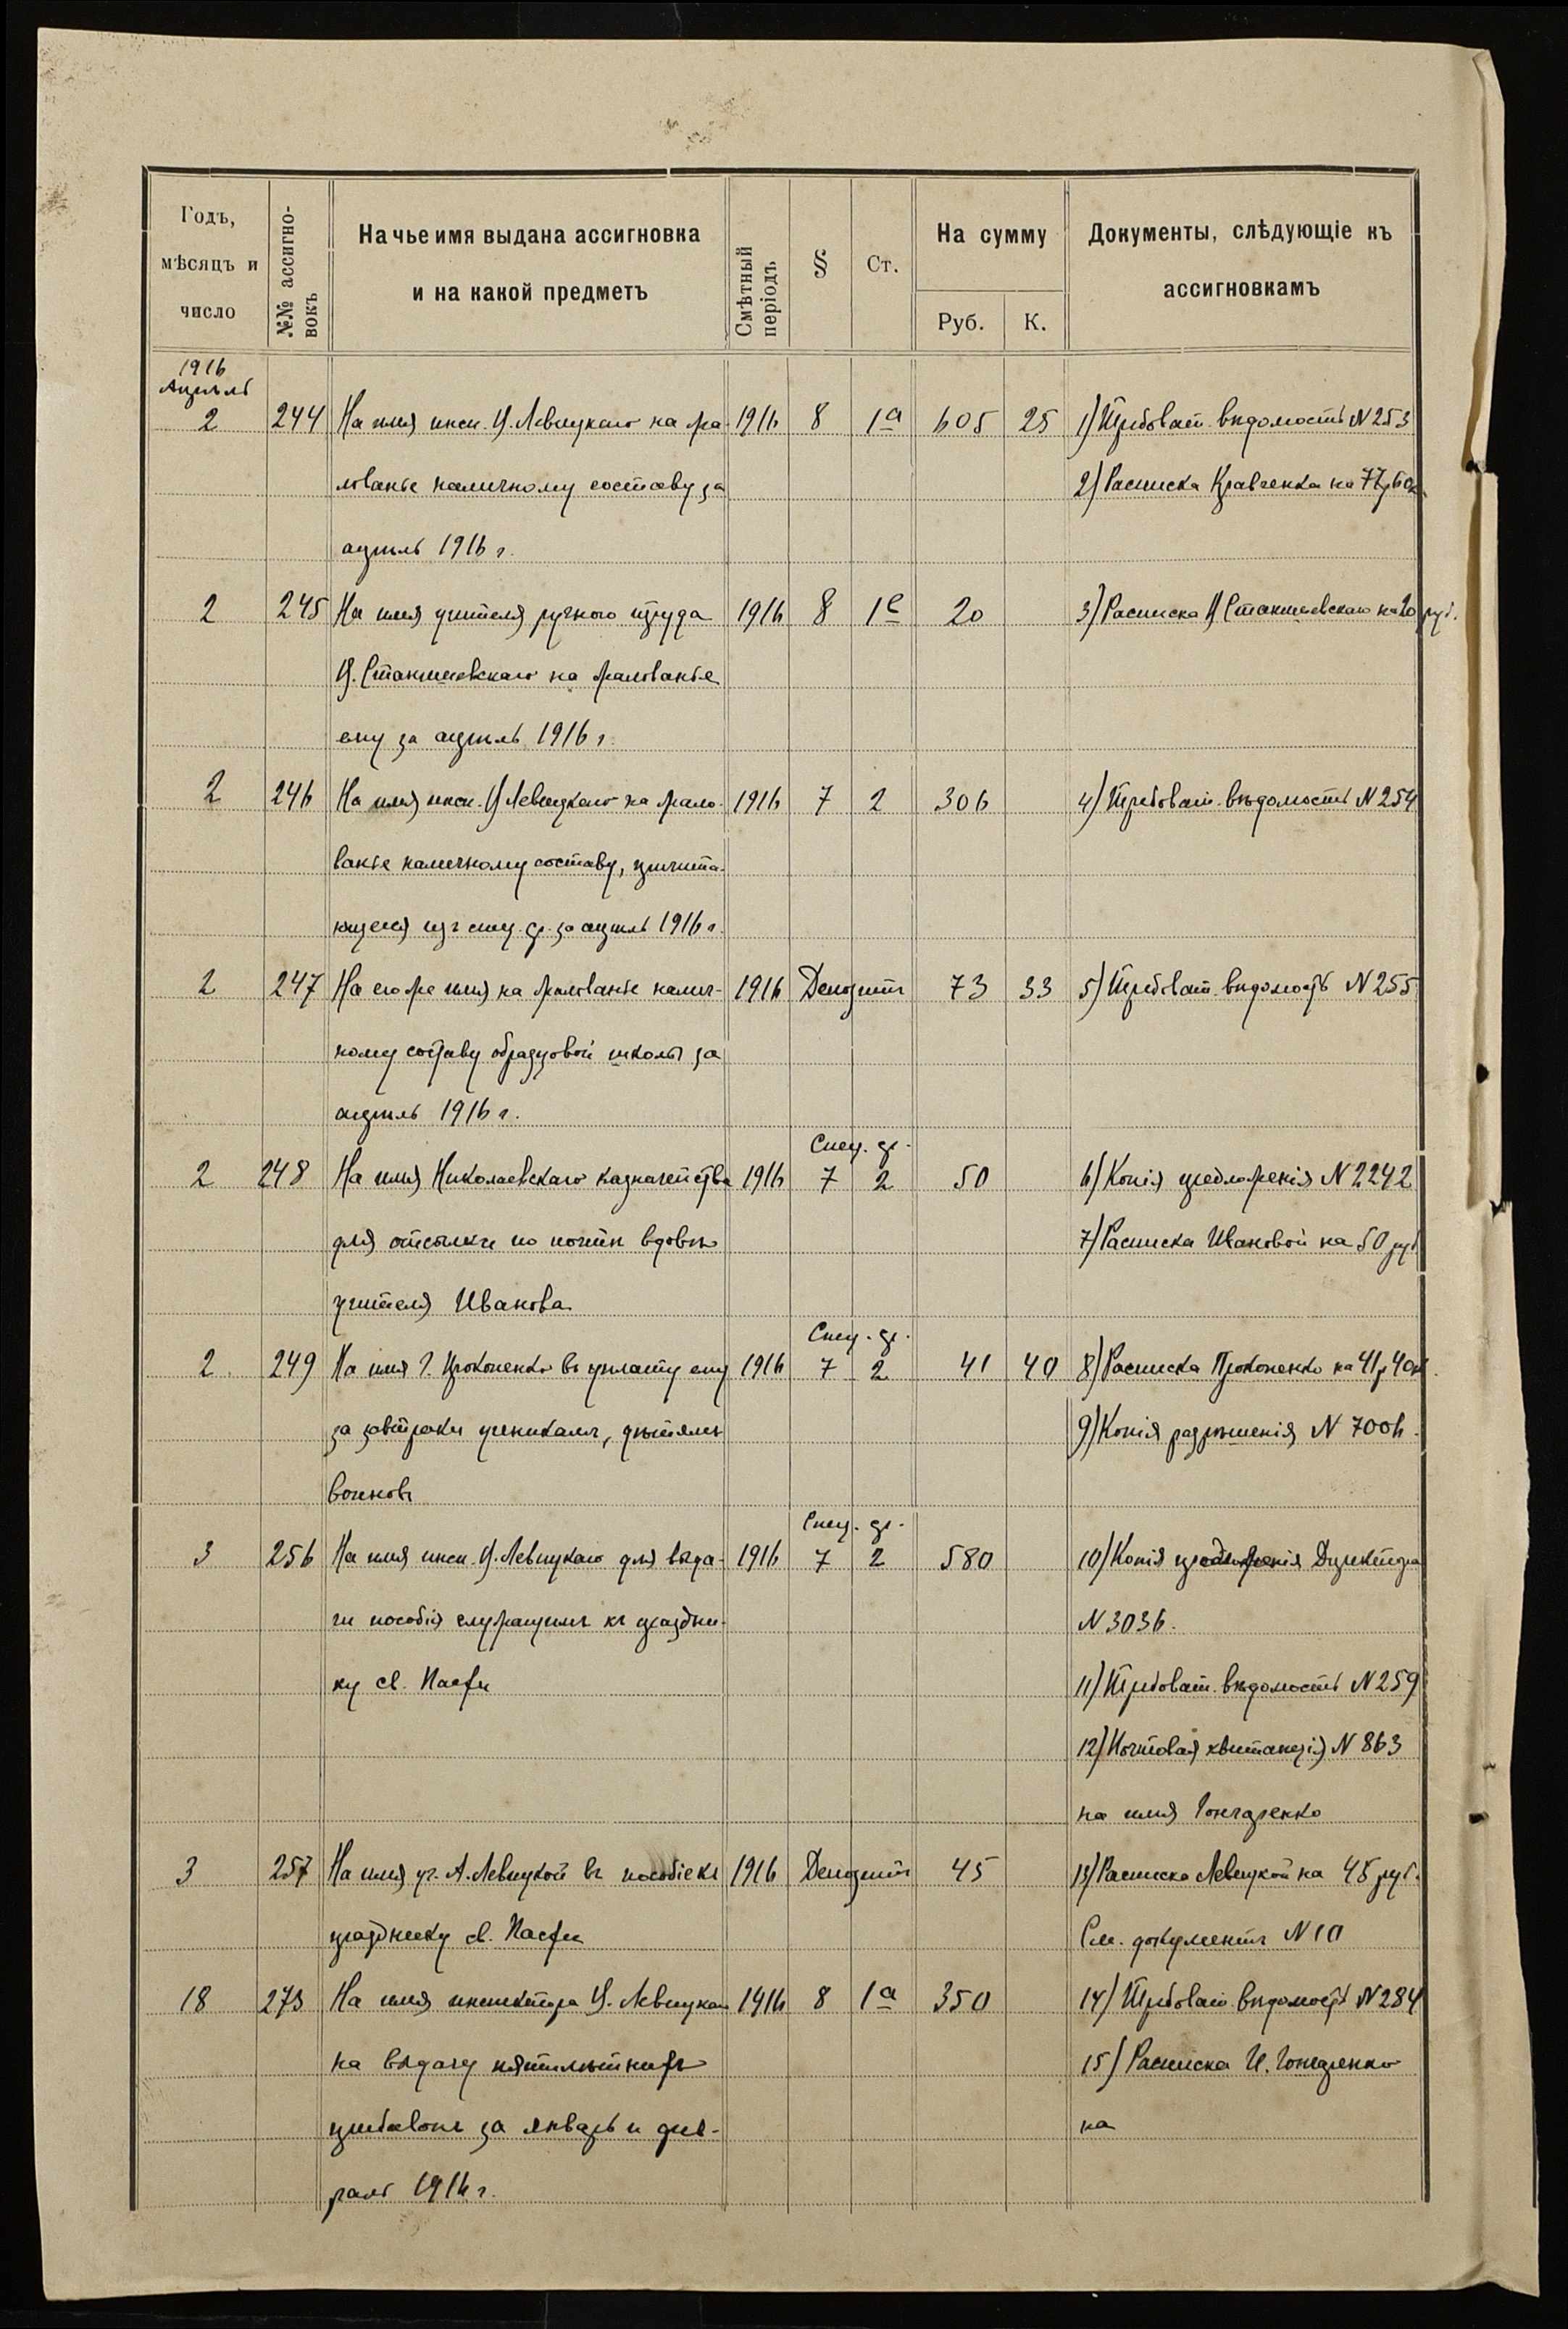 Годъ, мѣсяцъ и число
№№ ассигно-вокъ
На чье имя выдана ассигновка
и на какой предметъ
Смѣтный періодъ
§
Ст.
На сумму
Руб.
К.
Документы, слѣдующіе къ
ассигновкамъ
1916
Апрѣль
2 244 На имя инсп. П. Левицкаго на жа- 1916 8 1а 605 25 1) Требоват. вѣдомость N 253
лованье наличному составу за 2) Расписка Кравченка на 77р60к
апрѣль 1916 г.
2 245 На имя учителя ручного труда 1916 8 1е 20 3) Расписка П. Стакшевскаго на 20 руб.
П. Стакшевскаго на жалованье
ему за апрѣль 1916 г.
2 246 На имя инсп. П. Левицкаго на жало- 1916 7 2 306 4) Требоват. вѣдомость N 254
ванье наличному составу, причита-
ющееся изъ спец. ср. за апрѣль 1916 г.
2 247 На его же имя на жалованье налич- 1916 Депозитъ 73 33 5) Требоват. вѣдомость N 255
ному составу образцовой школы за
апрѣль 1916 г.
Спец. ср.
2 248 На имя Николаевскаго казначейства 1916 7 2 50 6) Копія предложенія N 2242
для отсылки по почтѣ вдовѣ 7) Расписка Ивановой на 50 руб
учителя Иванова
Спец. ср.
2. 249 На имя Г. Прокопенко въ уплату ему 1916 7 2 41 40 8) Расписка Прокопенко на 41р 40к.
за завтраки ученикамъ, дѣтямъ 9) Копія разрѣшенія N 7006.
воиновъ
Спец. ср.
3 256 На имя инсп. П. Левицкаго для выда- 1916 7 2 580 10) Копія предложенія Директора
чи пособія служащимъ къ праздни- N 3036.
ку св. Пасхи 11) Требоват. вѣдомость N 259
12) Почтовая квитанція N 863
на имя Гончаренко
3 257 На имя уч. А. Левицкой въ пособіе къ 1916 Депозитъ 45 13) Расписка Левицкой на 45 руб.
празднику св. Пасхи См. документъ N 10
18 273 На имя инспектора П. Левицкаго 1916 8 1а 350 14) Требоват. вѣдомость N 284
на выдачу пятилѣтнихъ 15) Расписка И. Гончаренко
прибавокъ за январь и фев- на
раль 1916 г.